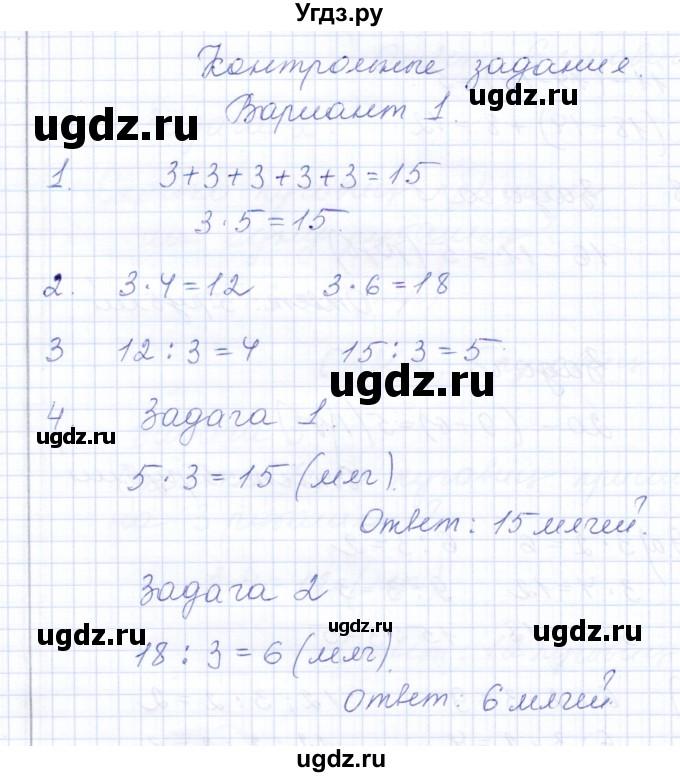 Угдз.ру
Контрольные задания.
Вариант 1.
ugdz.ru
ugdz.ru
1. 3+3+3+3+3=15
3·5=15.
2. 3·4=12 3·6=18
3 12:3=4 15:3=5
ugdz.ru
4 Задача 1.
ugdz.ru
5·3=15 (мяч).
Ответ: 15 мячей.
Задача 2
ugdz.ru ugdz.ru ugdz.ru
18:3=6 (мяч).
Ответ: 6 мячей.
ugdz.ru